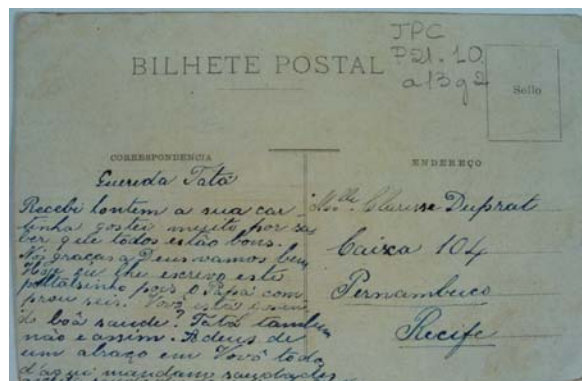 JPC
P21.10
a13g2
BILHETE POSTAL
Sello
CORRESPONDENCIA
Querida Tatá
Recebi hontem a sua car-
tinha gostei muito por sa
ber que todos estão bons.
Nós graças a Deus vamos bem
Hoje eu lhe escrevo este
postalsinho pois o Papá com
prou seis. Vovó está
boa saude? Tatá tambem
não é assim. Adeus de
um abraço em Vovó todo
d'aqui mandam saudades
ENDEREÇO
Mlle. Clarisse Duprat
Caixa 104
Pernambuco
Recife